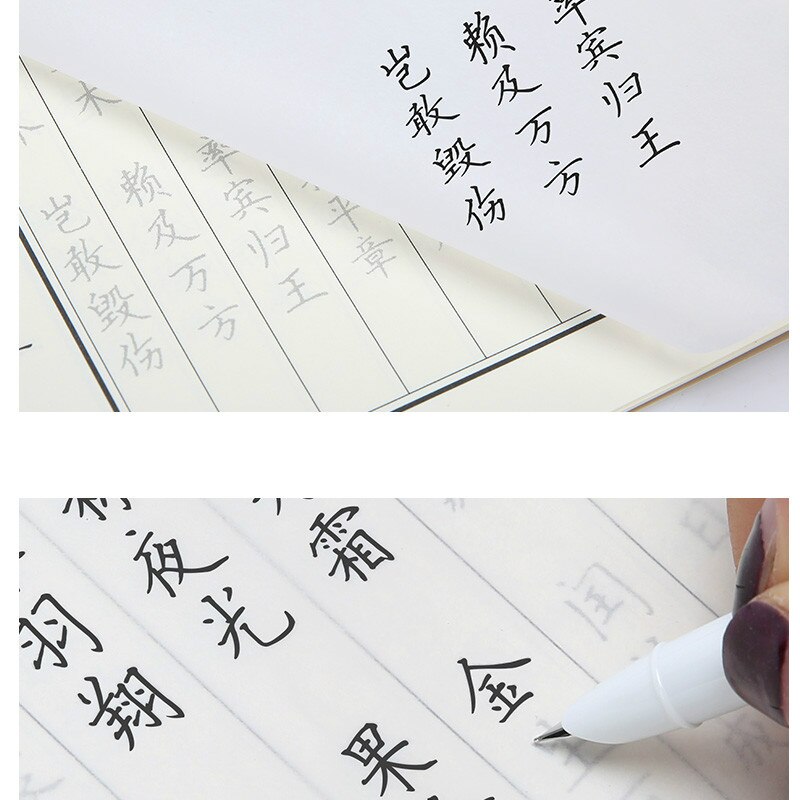 率宾归王
赖及万方
岂敢毁伤
平章
率宾归王
赖及万方
木
岂敢毁伤
闰
金
霜
果
夜光
羽翔